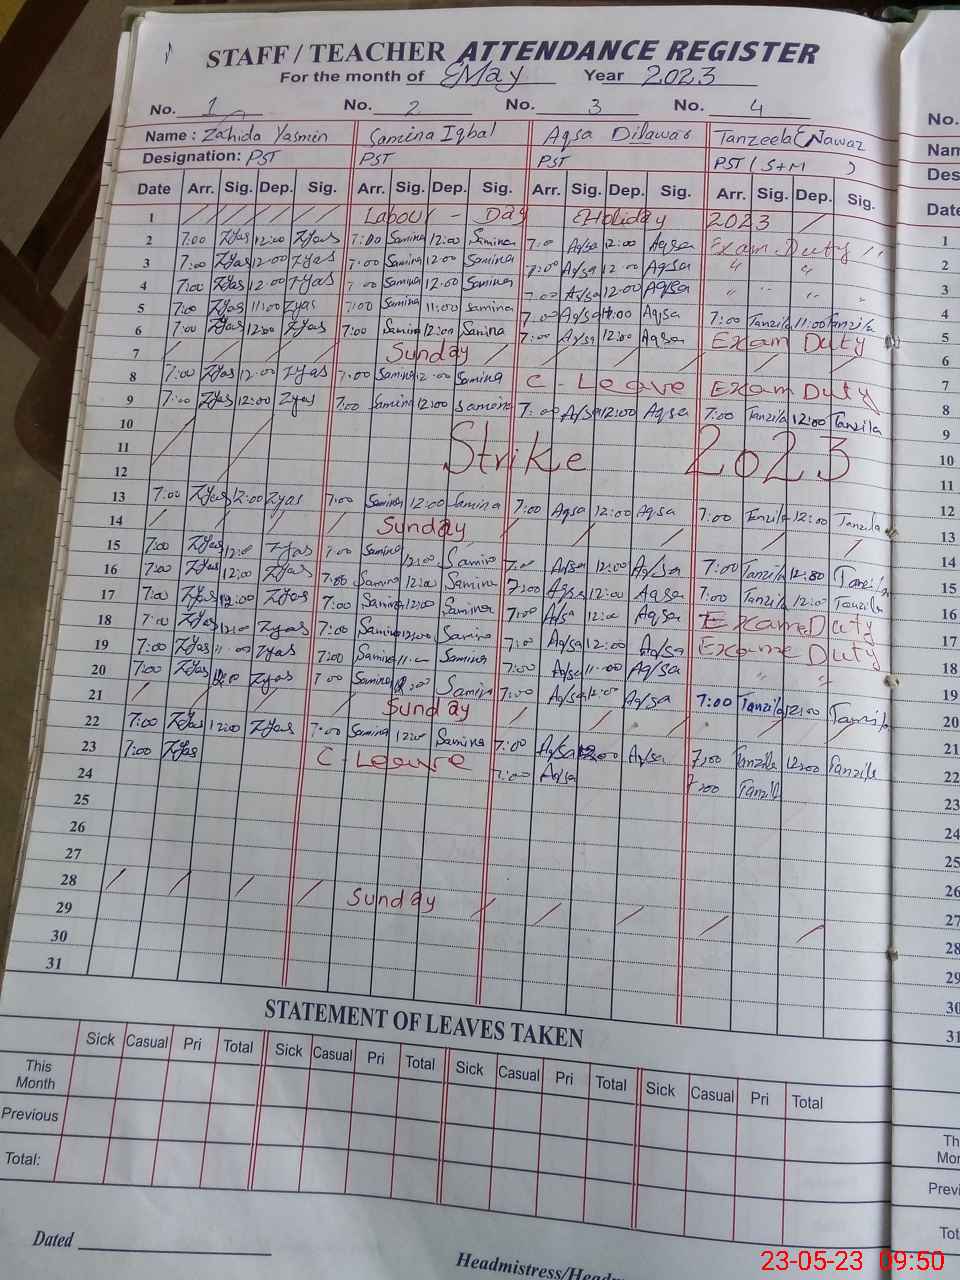 STAFF / TEACHER ATTENDANCE REGISTER
For the month of May Year 2023
No. 1 No. 2 No. 3 No. 4
Name: Zahida Yasmin Samina Iqbal Aqsa Dilawar Tanzeela Nawaz
Designation: PST PST PST PST (S+M )
Date Arr. Sig. Dep. Sig. Arr. Sig. Dep. Sig. Arr. Sig. Dep. Sig. Arr. Sig. Dep. Sig.
1 Labour - Day Holiday 2023
2 7:00 Zyas 12:00 Zyas 7:00 Samina 12:00 Samina 7:00 Aqsa 12:00 Aqsa Exam Duty
3 7:00 Zyas 12:00 Zyas 7:00 Samina 12:00 Samina 7:00 Aqsa 12:00 Aqsa " "
4 7:00 Zyas 12:00 Zyas 7:00 Samina 12:00 Samina 7:00 Aqsa 12:00 Aqsa " " " "
5 7:00 Zyas 11:00 Zyas 7:00 Samina 11:00 Samina 7:00 Aqsa 11:00 Aqsa 7:00 Tanzila 11:00 Tanzila
6 7:00 Zyas 12:00 Zyas 7:00 Samina 12:00 Samina 7:00 Aqsa 12:00 Aqsa Exam Duty
7 Sunday
8 7:00 Zyas 12:00 Zyas 7:00 Samina 12:00 Samina C - Leave Exam Duty
9 7:00 Zyas 12:00 Zyas 7:00 Samina 12:00 Samina 7:00 Aqsa 12:00 Aqsa 7:00 Tanzila 12:00 Tanzila
10
11 Strike 2023
12
13 7:00 Zyas 12:00 Zyas 7:00 Samina 12:00 Samina 7:00 Aqsa 12:00 Aqsa 7:00 Tanzila 12:00 Tanzila
14 Sunday
15 7:00 Zyas 12:00 Zyas 7:00 Samina 12:00 Samina 7:00 Aqsa 12:00 Aqsa 7:00 Tanzila 12:00 Tanzila
16 7:00 Zyas 12:00 Zyas 7:00 Samina 12:00 Samina 7:00 Aqsa 12:00 Aqsa 7:00 Tanzila 12:00 Tanzila
17 7:00 Zyas 12:00 Zyas 7:00 Samina 12:00 Samina 7:00 Aqsa 12:00 Aqsa Exame Duty
18 7:00 Zyas 12:00 Zyas 7:00 Samina 12:00 Samina 7:00 Aqsa 12:00 Aqsa Exame Duty
19 7:00 Zyas 11:00 Zyas 7:00 Samina 11:00 Samina 7:00 Aqsa 11:00 Aqsa " "
20 7:00 Zyas 12:00 Zyas 7:00 Samina 12:00 Samina 7:00 Aqsa 12:00 Aqsa 7:00 Tanzila 12:00 Tanzila
21 Sunday
22 7:00 Zyas 12:00 Zyas 7:00 Samina 12:00 Samina 7:00 Aqsa 12:00 Aqsa 7:00 Tanzila 12:00 Tanzila
23 7:00 Zyas C - Leave 7:00 Aqsa 7:00 Tanzila
24
25
26
27
28 Sunday
29
30
31
STATEMENT OF LEAVES TAKEN
Sick Casual Pri Total Sick Casual Pri Total Sick Casual Pri Total Sick Casual Pri Total
This Month
Previous
Total:
Dated
Headmistress/
No.
Date
1
2
3
4
5
6
7
8
9
10
11
12
13
14
15
16
17
18
19
20
21
22
23
24
25
26
27
28
29
30
31
23-05-23 09:50